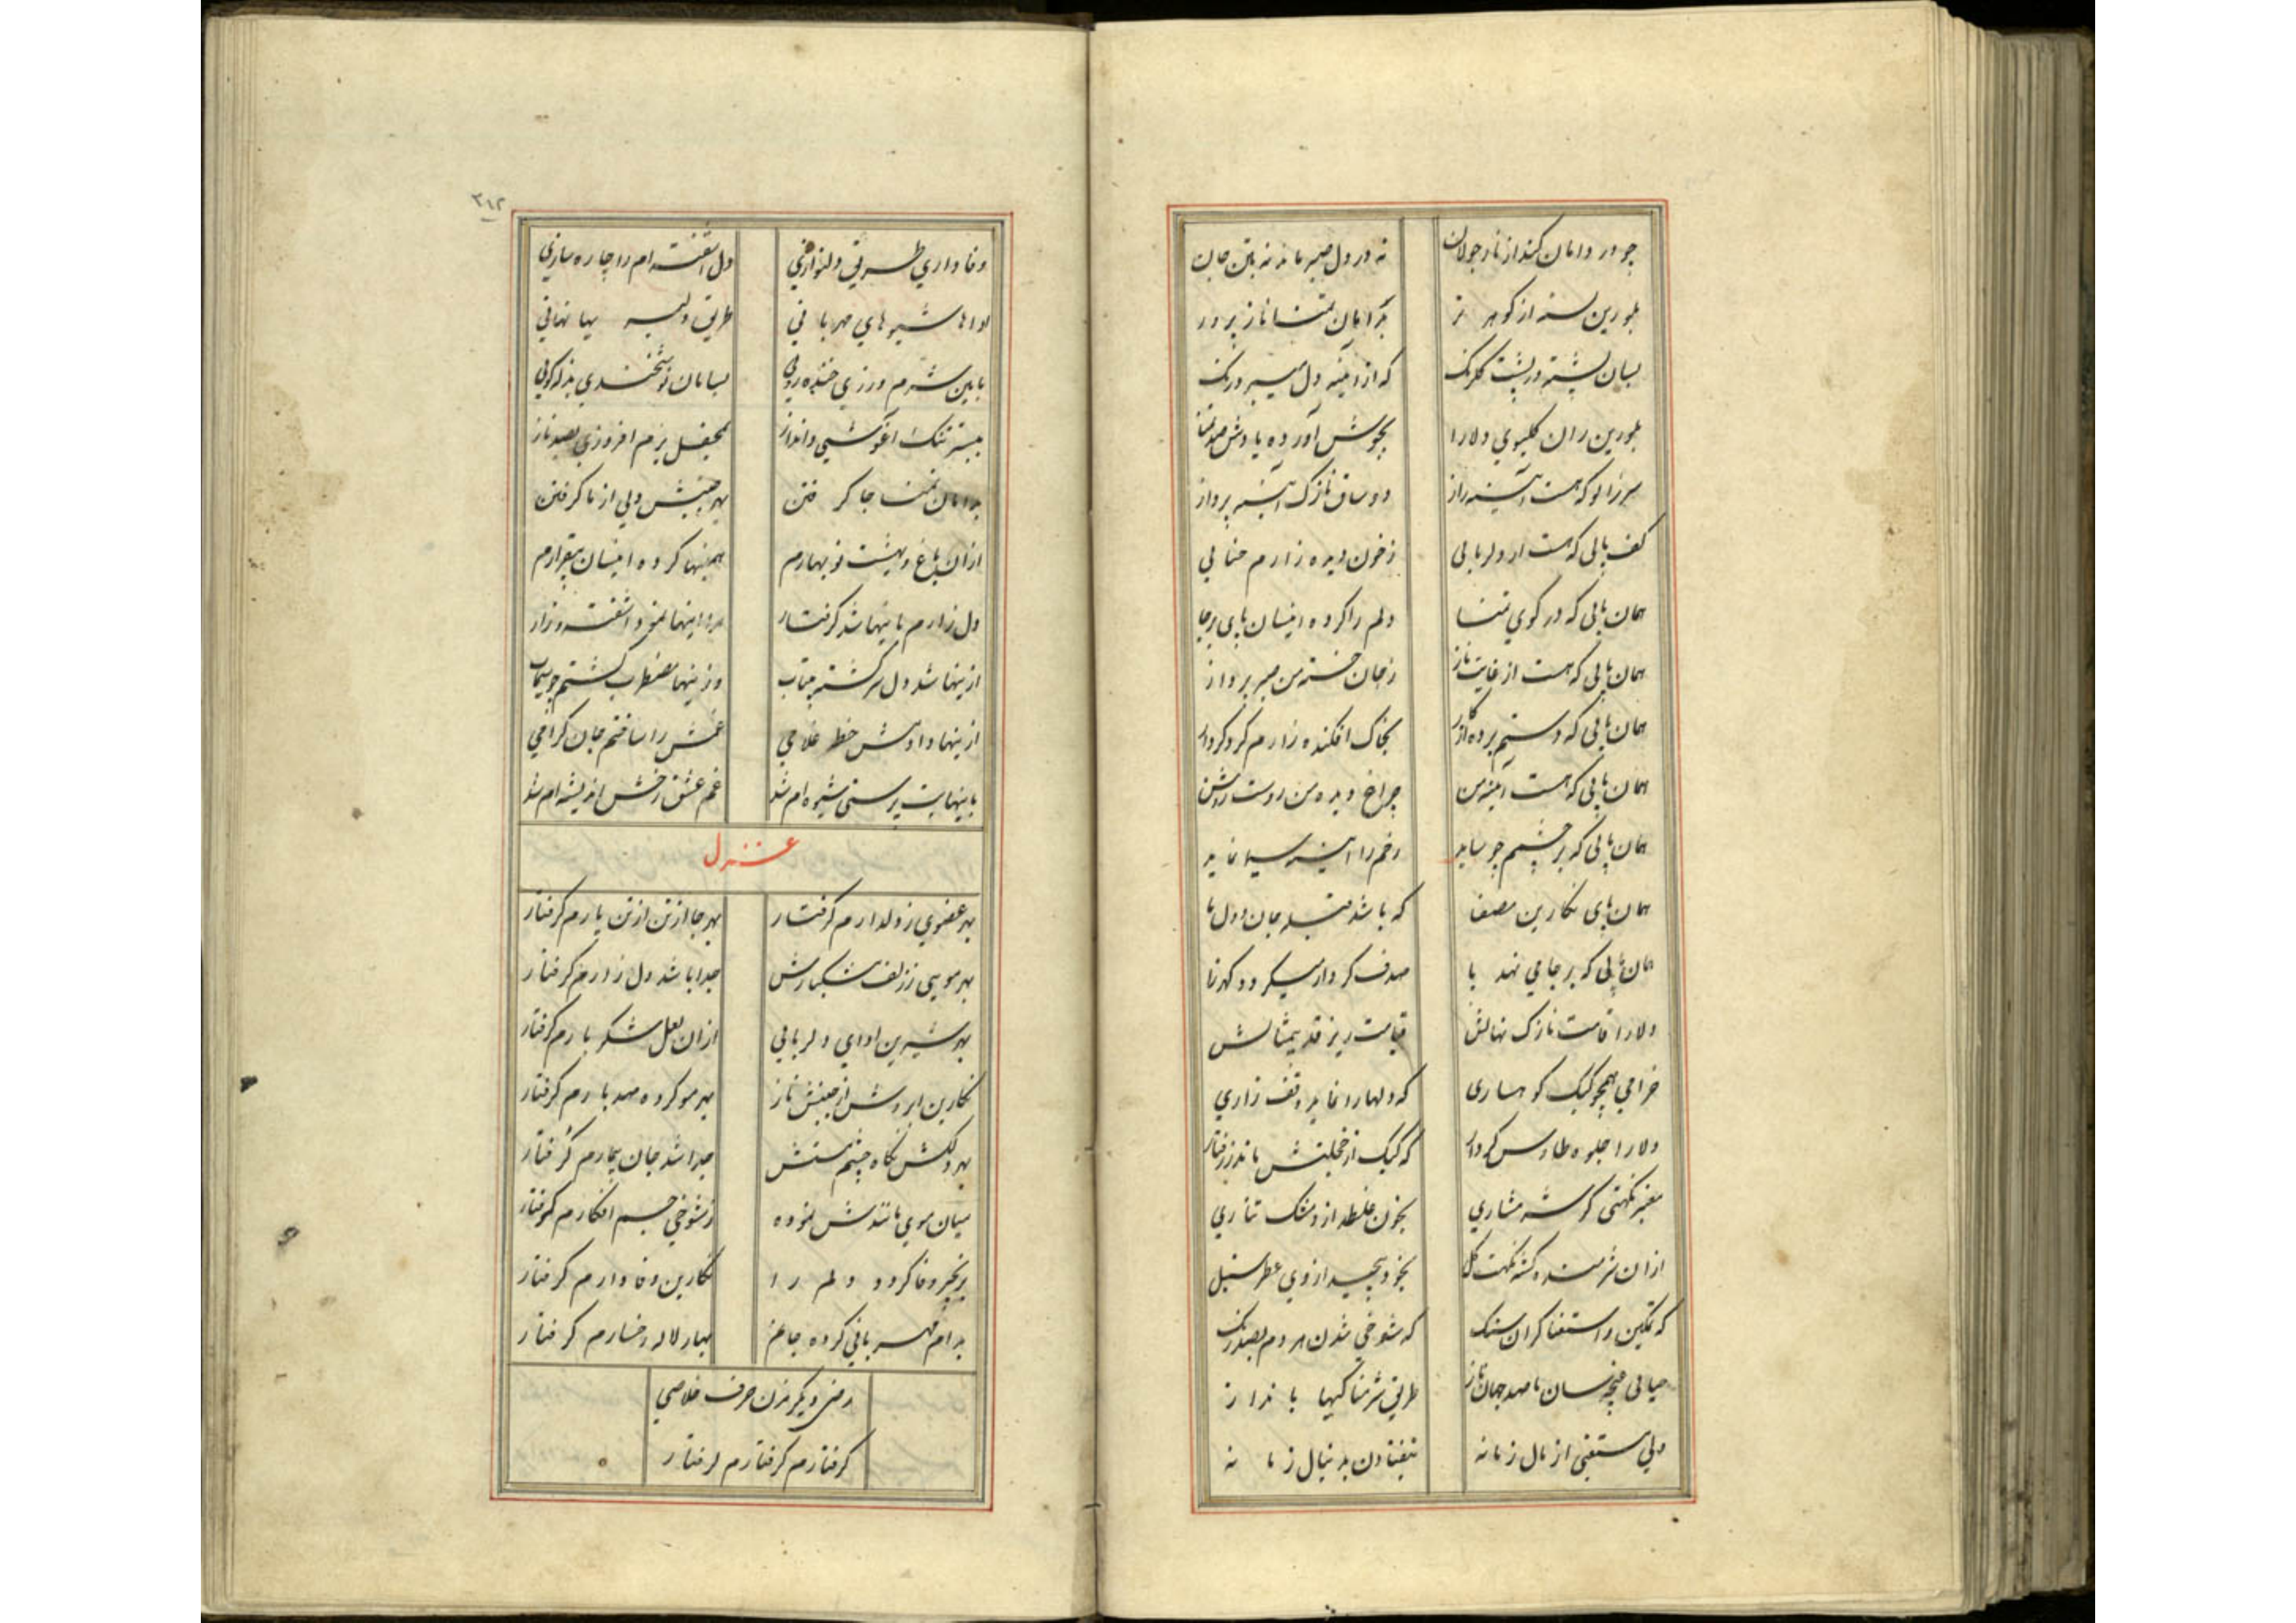 چو در دامان کند از ناز جولان نه در دل صبر ماند نه بتن جان
بلورین سینه از گوهر تر بدامان تمنا ناز پرور
بسان پشت گلرنگ که از آئینه دل میبرد رنگ
بلورین ران دلارا بجوش آورده یادش صد تمنا
سر زانو که هست آئینه راز دو ساق نازک آئینه پرداز
کف پائی که هست از دلربائی ز خون دیده زارم حنائی
همان پائی که در کوی تمنا دلم را کرده اینسان پای برجا
همان پائی که هست از غایت ناز ز جان خسته من صبر پرداز
همان پائی که دستم برده از کار بخاک افکنده زارم گرد کردار
همان پائی که هست آئینه من چراغ دیده من زوست روشن
همان پائی که بر چشمم چو ساید رخم را آئینه سیما نماید
همان پای نگارین مصفا که باشد قبله جان و دل ما
همان پائی که بر جا می نهد پا صدف کردار میگردد گهرزا
دلارا قامت نازک نهالش قیامت ریز قد بیمثالش
خرامی همچو کبک کوهساری که دلها را نماید وقف زاری
دلارا جلوه طاوس کردار که کبک از خجلتش ماند ز رفتار
معنبر نکهتی بخون غلطد ازو مشک تتاری
ازان شرمنده گشته نکهت گل بخود پیچید از وی عطر سنبل
که تمکین و استغنا گران سنگ که شوخی شدن هر دم بصد رنگ
حیائی غنچه سان با صد جهان ناز طریق شرمناکیها با نداز
ولی مستغنی از مال زمانه نیفتادن بدنبال زمانه
۳۱۲
وفاداری طریق دلنوازی دل آشفته ام را چاره سازی
اداها شیوهای مهربانی طریق دلبریها نهانی
باین شرم ورزی خنده روئی بسامان نوشخندی بذله گوئی
ببستر تنگ آغوشی و انداز بمحفل بزم افروزی بصد ناز
بدامان تمنا جا گرفتن بهر جنبش دلی از ما گرفتن
ازان باغ و بهشت نوبهارم همینها کرده اینسان بیقرارم
دل زارم باینها شد گرفتار مرا اینها نمود آشفته و زار
ازینها شد دل سرگشته بیتاب وزینها مضطرب گشتم چو سیماب
ازینها دادمش خط غلامی غمش را ساختم جان گرامی
باینها بت پرستی شیوه ام شد غم عشق رخش اندیشه ام شد
غزل
بهر عضوی ز دلدارم گرفتار بهر جا از تن از تن یارم گرفتار
بهر موئی ز زلف مشکبارش جدا باشد دل زارم گرفتار
بهر شیرین ادای دلربائی ازان لعل شکربارم گرفتار
نگارین ابروش از جنبش ناز بهر مو کرده صد بارم گرفتار
بهر دلکش نگاه چشم مستش جدا شد جان بیمارم گرفتار
میان موی مانندش نموده ز شوخی جسم افکارم گرفتار
بزنجیر وفا کرد دلم را نگارین وفادارم گرفتار
بدام مهربانی کرده جامی بهار لاله رخسارم گرفتار
رضی دیگر مزن حرف خلاصی
گرفتارم گرفتارم گرفتار